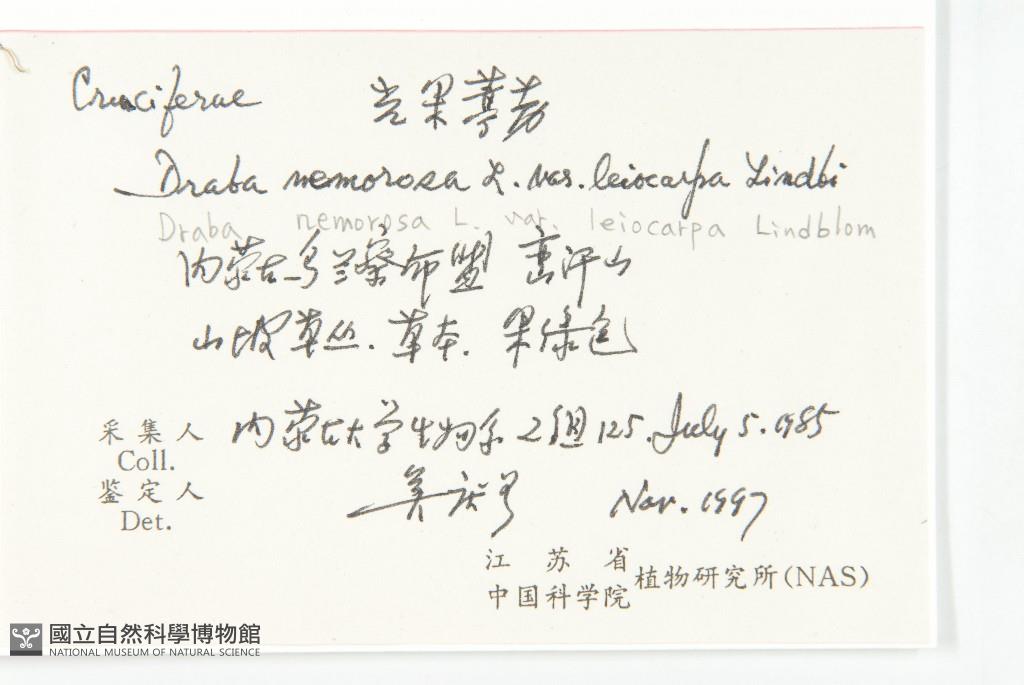 Cruciferae 光果葶苈
Draba nemorosa L. var. leiocarpa Lindbl
Draba nemorosa L. var. leiocarpa Lindblom
内蒙古乌兰察布盟 蛮汗山
山坡草丛. 草本. 果绿色
采集人 内蒙古大学生物系2组125. July 5. 1985
Coll.
鉴定人 Nov. 1997
Det.
江苏省
中国科学院 植物研究所(NAS)
國立自然科學博物館
NATIONAL MUSEUM OF NATURAL SCIENCE